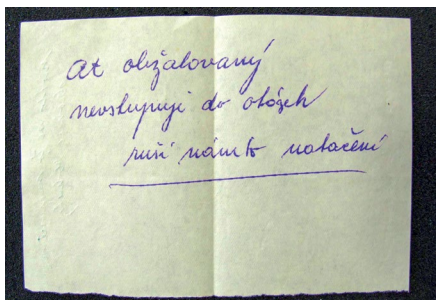 at obžalovaný
nevstupuje do otázek
ruší nám to natáčení